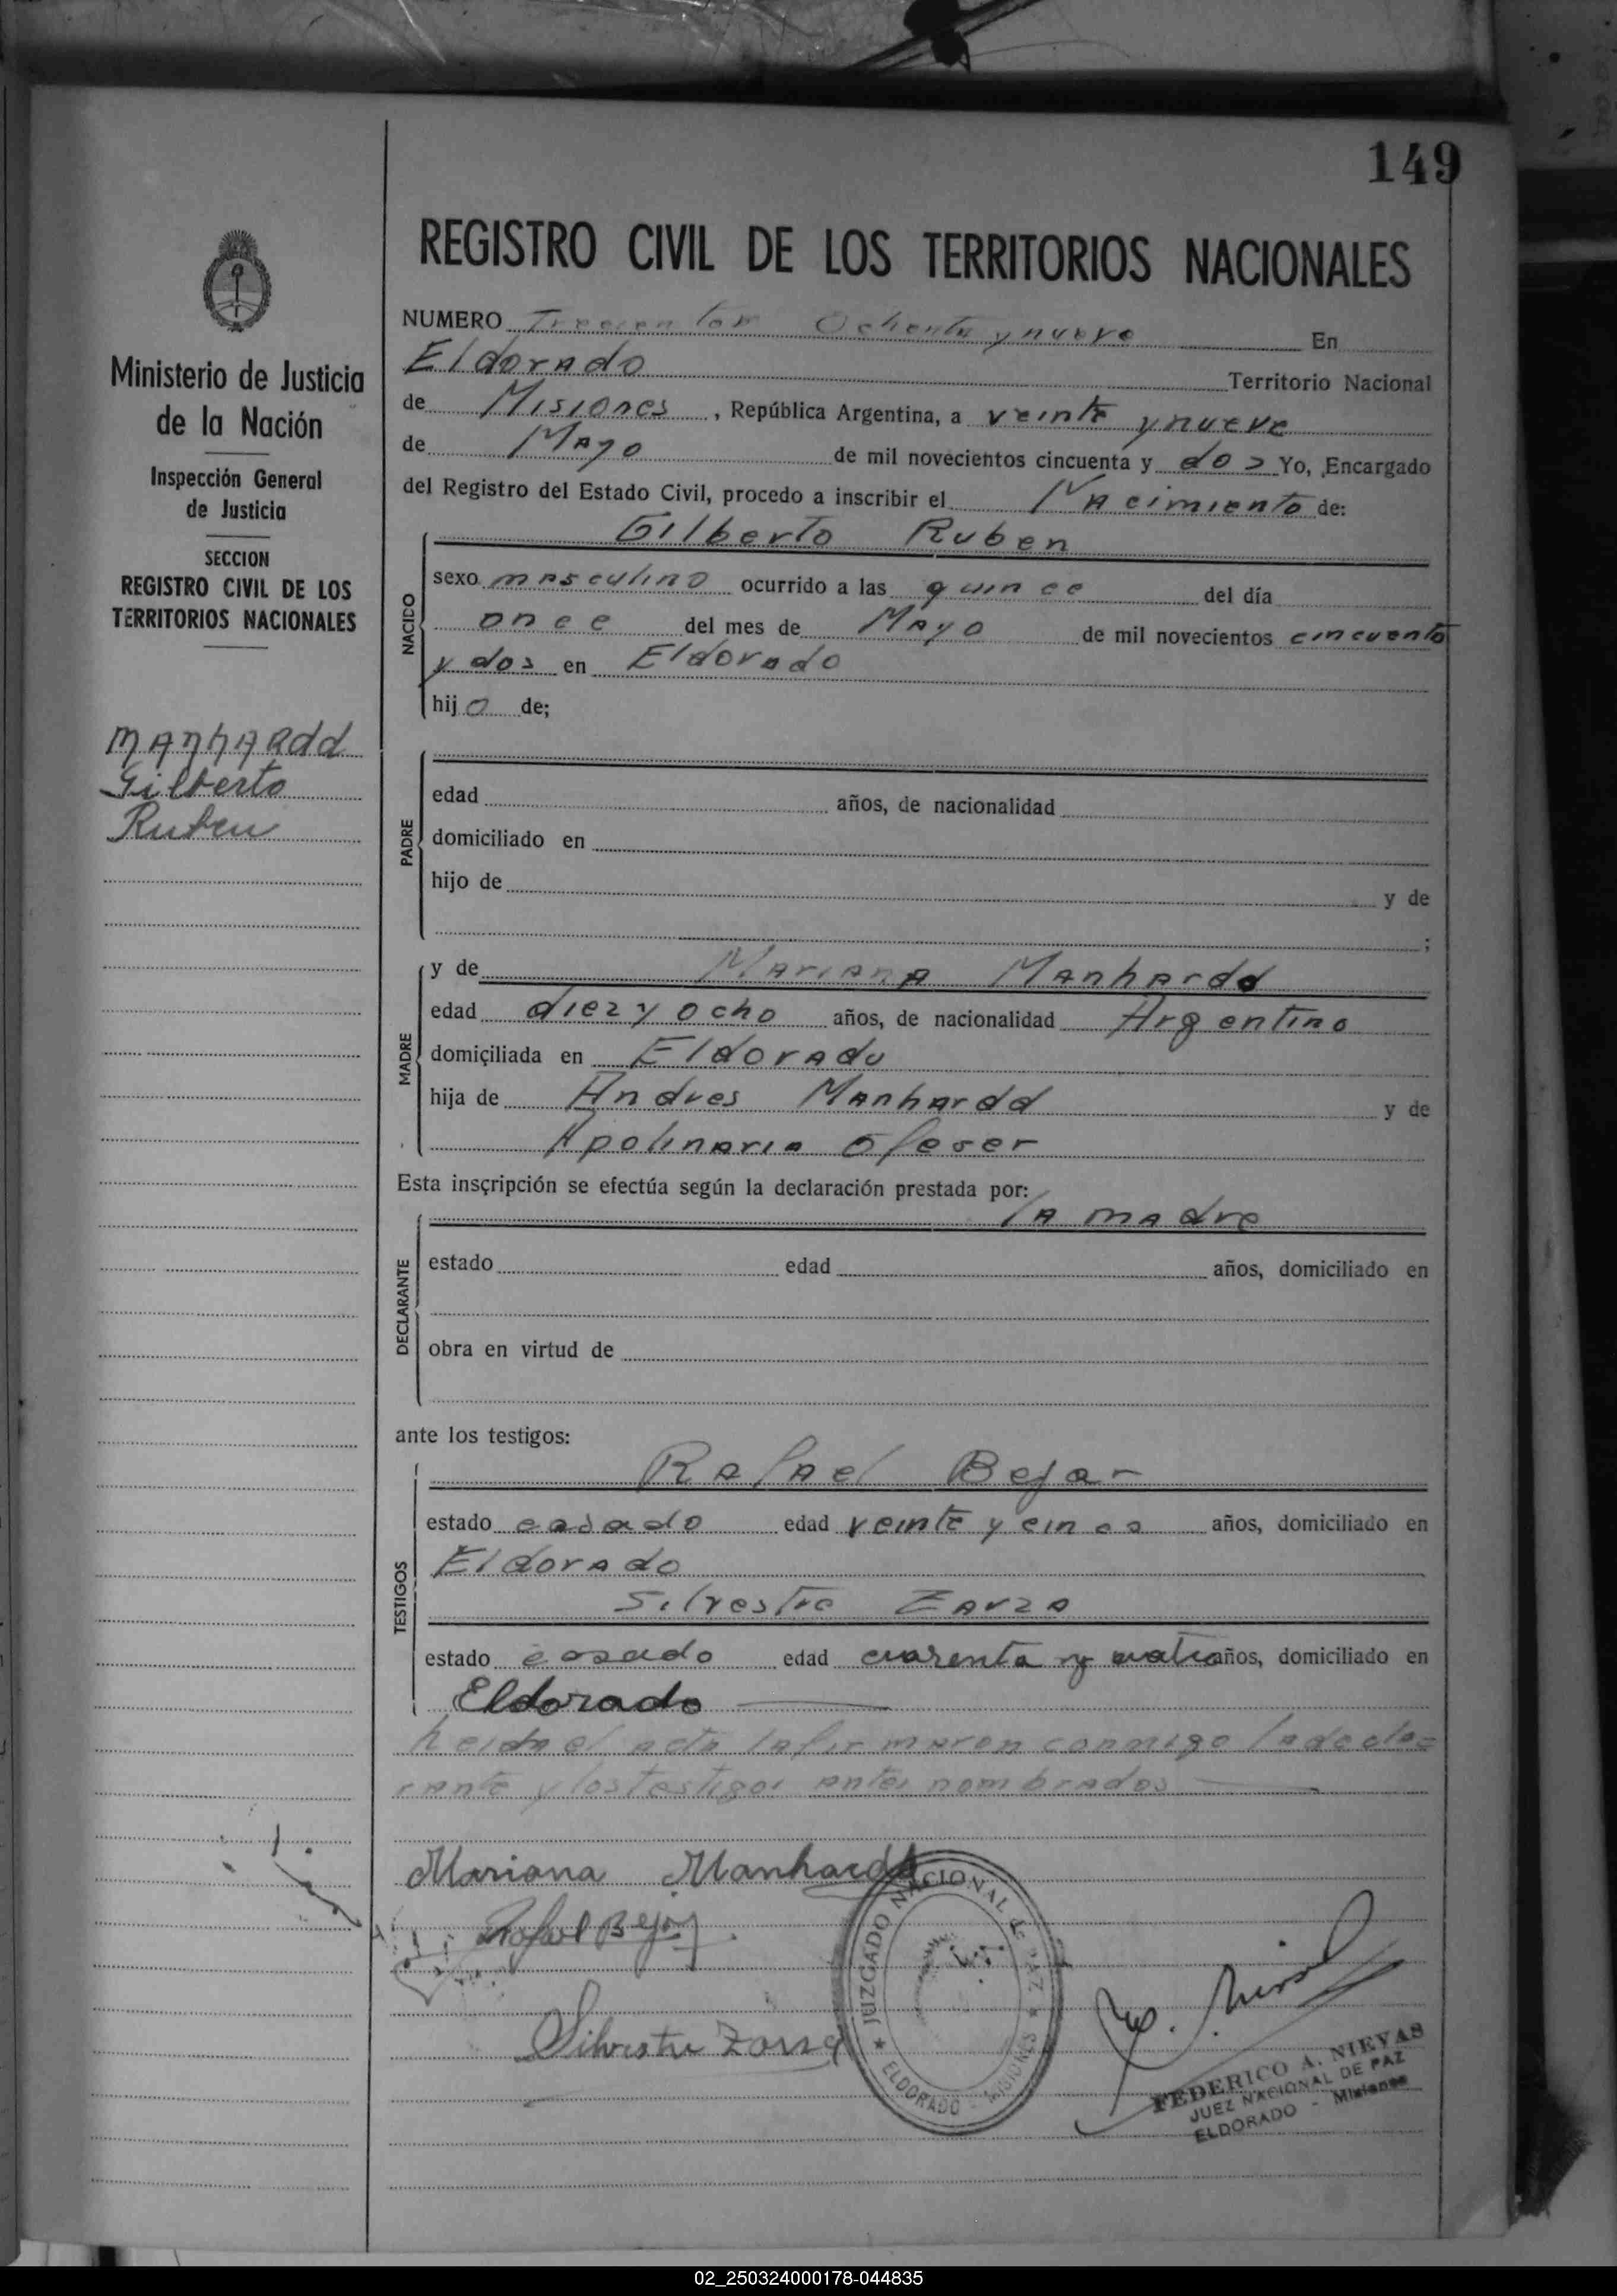 149
REGISTRO CIVIL DE LOS TERRITORIOS NACIONALES
Ministerio de Justicia
de la Nación
Inspección General
de Justicia
SECCION
REGISTRO CIVIL DE LOS
TERRITORIOS NACIONALES
MANhARdd
Gilberto
Ruben
NUMERO Trescientos Ochenta y nueve En
Eldorado Territorio Nacional
de Misiones, República Argentina, a veinte y nueve
de Mayo de mil novecientos cincuenta y dos Yo, Encargado
del Registro del Estado Civil, procedo a inscribir el Nacimiento de:
NACIDO
Gilberto Ruben
sexo masculino ocurrido a las quince del día
once del mes de Mayo de mil novecientos cincuenta
y dos en Eldorado
hijo de;
PADRE
edad años, de nacionalidad
domiciliado en
hijo de y de
;
MADRE
y de Mariana Manhardd
edad diez y ocho años, de nacionalidad Argentina
domiciliada en Eldorado
hija de Andres Manhardd y de
Apolinaria
Esta inscripción se efectúa según la declaración prestada por:
DECLARANTE
la madre
estado edad años, domiciliado en
obra en virtud de
ante los testigos:
TESTIGOS
Rafael Bejar
estado casado edad veinte y cinco años, domiciliado en
Eldorado
Silvestre Zarza
estado casado edad cuarenta y cuatro años, domiciliado en
Eldorado
Leida el acta la firmaron conmigo la decla=
rante y los testigos antes nombrados
Mariana Manhardd
Rafael Bejar
Silvestre Zarza
JUZGADO NACIONAL de PAZ
ELDORADO - MISIONES
FEDERICO A. NIEVAS
JUEZ NACIONAL DE PAZ
ELDORADO - Misiones
02_250324000178-044835